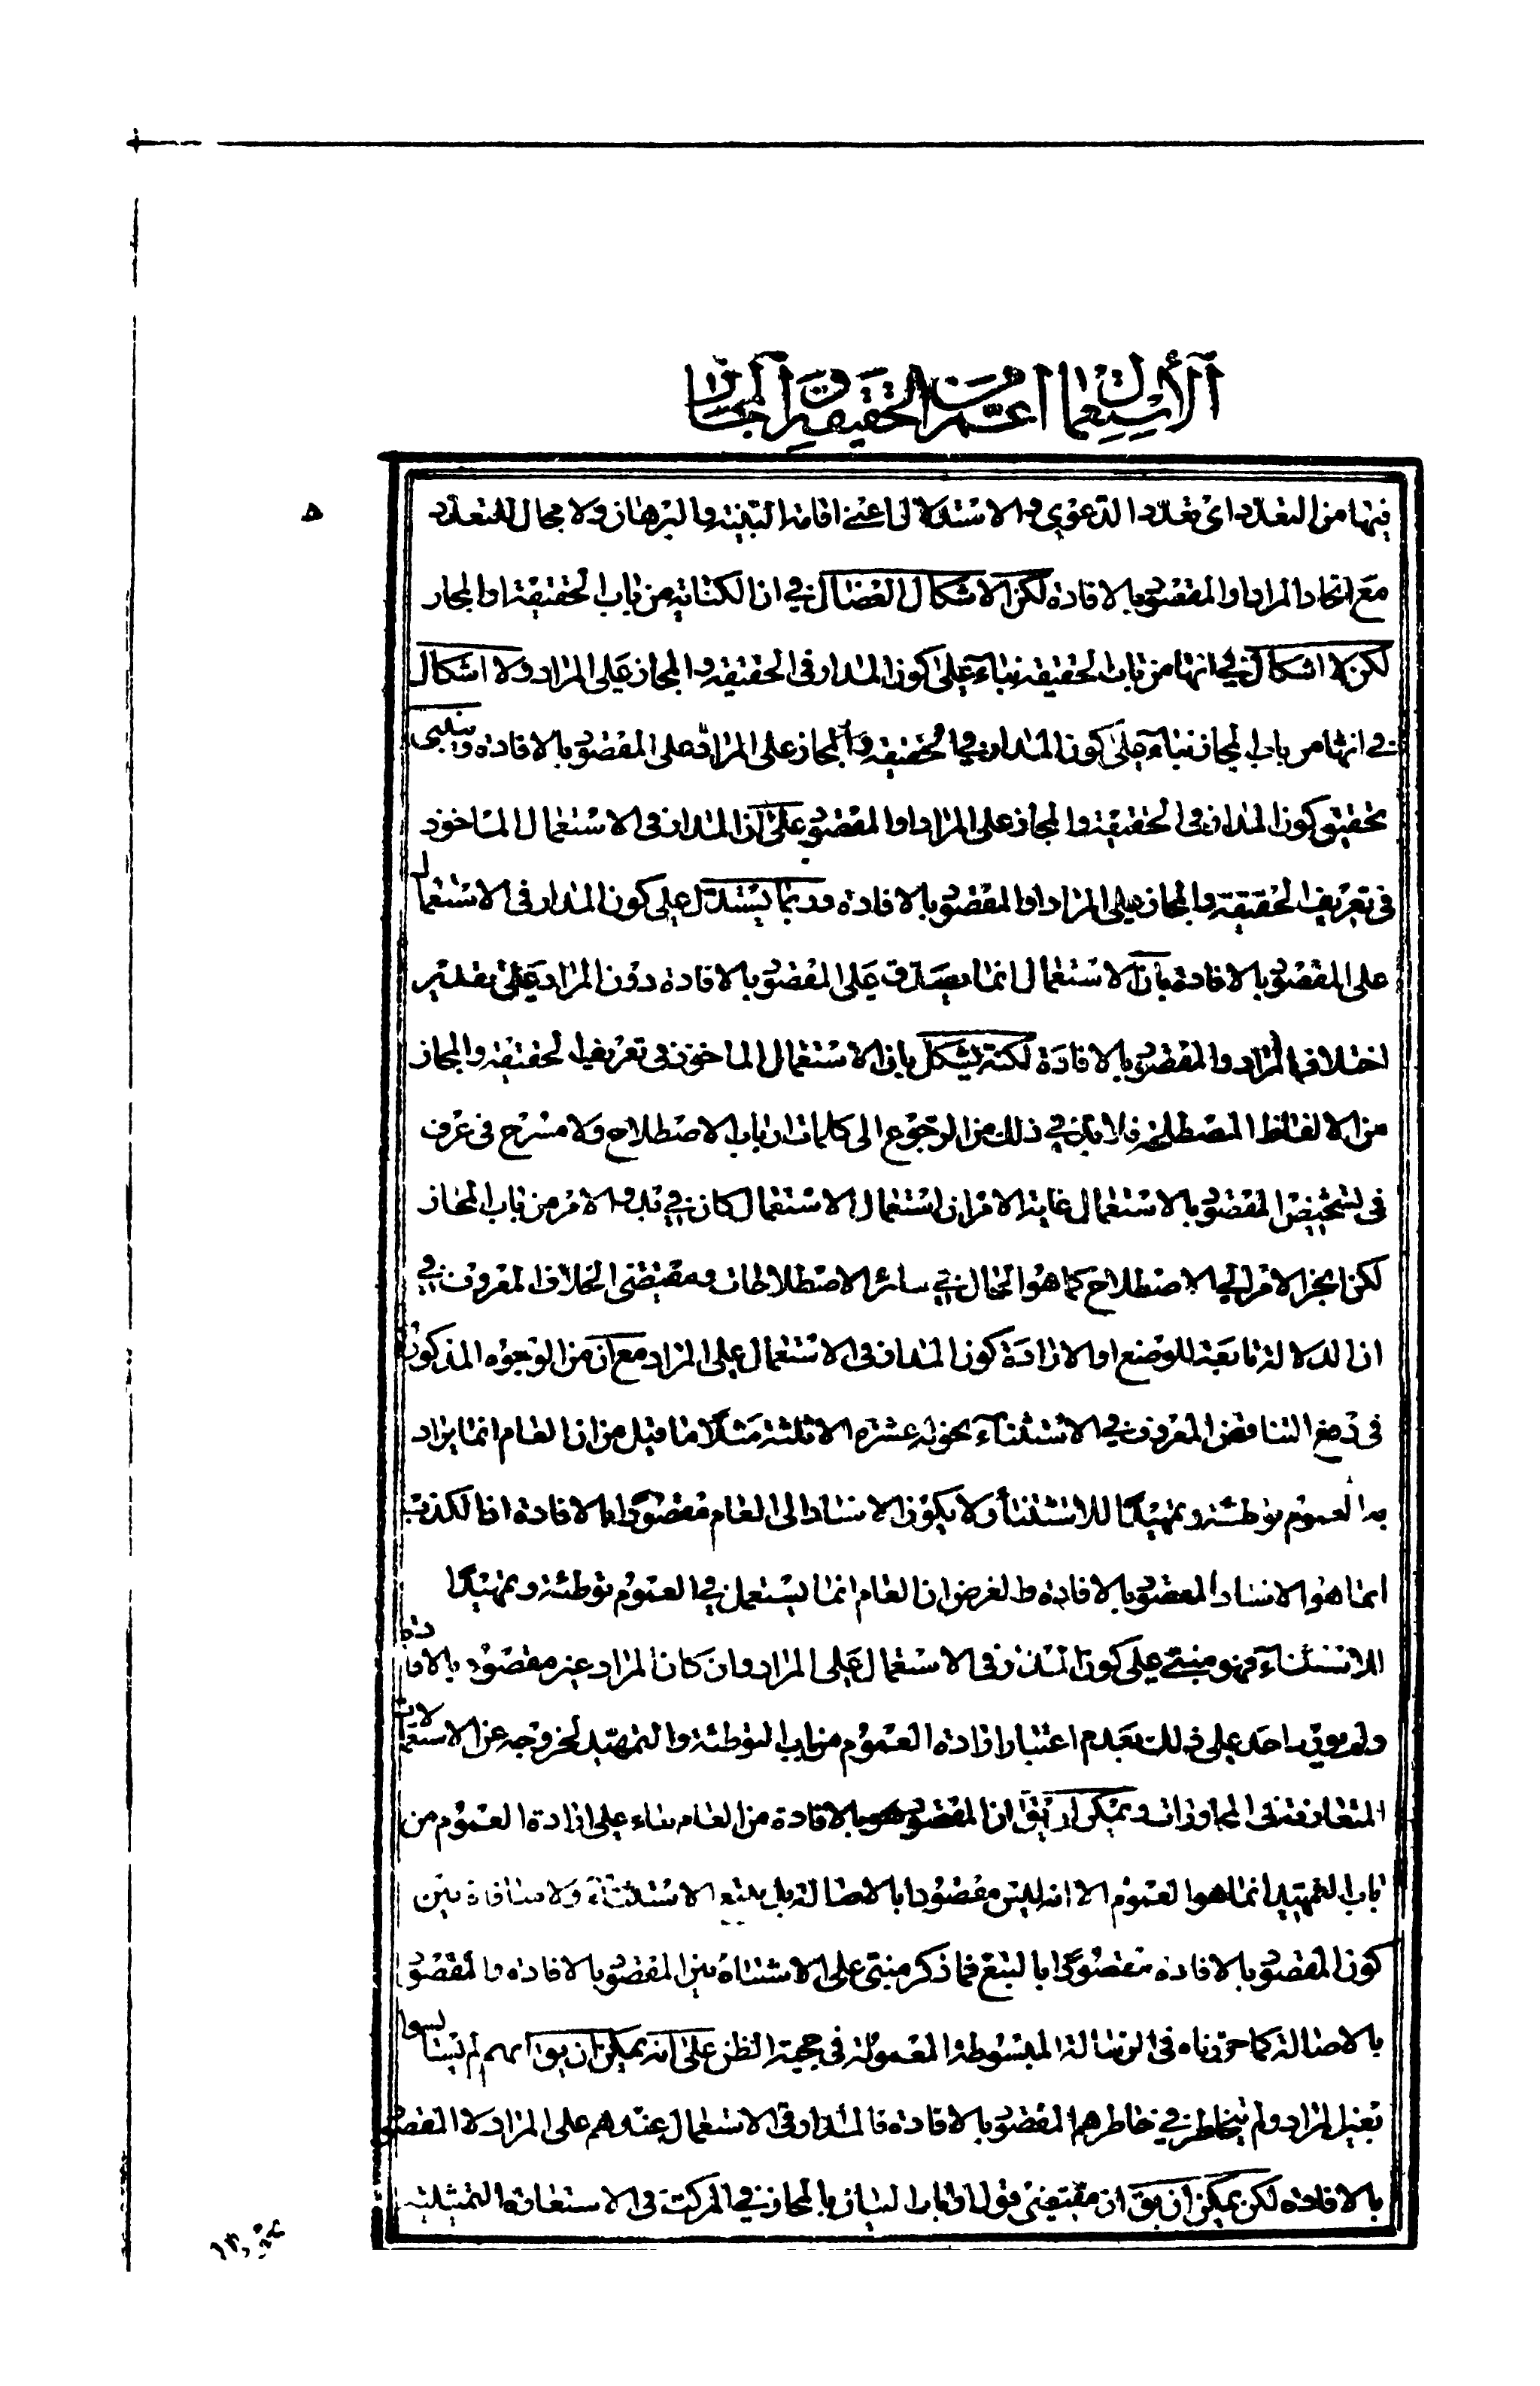 الاستعمال اعم من الحقيقة والمجاز
٥
فيها من التعدد اى تعدد الدعوى والاستدلال اعنى اقامة البينة والبرهان ولا مجال للتعدد
مع اتحاد المراد والمقصود بالافادة لكن الاشكال العضال فى ان الكناية من باب الحقيقة او المجاز
لكن لا اشكال فى انها من باب الحقيقة بناء على كون المدار فى الحقيقة والمجاز على المراد ولا اشكال
فى انها من باب المجاز بناء على كون المدار فى الحقيقة والمجاز على المراد على المقصود بالافادة وينبغى
تحقيق كون المدار فى الحقيقة والمجاز على المراد او المقصود على ان المدار فى الاستعمال الماخوذ
فى تعريف الحقيقة والمجاز على المراد او المقصود بالافادة وربما يستدل على كون المدار فى الاستعمال
على المقصود بالافادة بان الاستعمال انما يصدق على المقصود بالافادة دون المراد على تقدير
اختلاف المراد والمقصود بالافادة لكنه يشكل بان الاستعمال الماخوذ فى تعريف الحقيقة والمجاز
من الالفاظ المصطلحة فلا بد فى ذلك من الرجوع الى كلمات ارباب الاصطلاح ولا مسرح فى عرف
فى تشخيص المقصود بالاستعمال غاية الامر ان استعمال الاستعمال كان فى بدو الامر من باب المجاز
لكن انجر الامر الى الاصطلاح كما هو الحال فى سائر الاصطلاحات ومقتضى الخلاف المعروف فى
ان الدلالة تابعة للوضع او الارادة كون المدار فى الاستعمال على المراد مع ان من الوجوه المذكورة
فى دفع التناقض المعروف فى الاستثناء نحو له عشرة الا ثلثة مثلا ما قيل من ان العام انما يراد
به العموم توطئة وتمهيدا للاستثناء ولا يكون الاسناد الى العام مقصودا بالافادة اذ الكذب
انما هو الاسناد المقصود بالافادة والغرض ان العام انما يستعمل فى العموم توطئة وتمهيدا
للاستثناء فهو مبنى على كون المدار فى الاستعمال على المراد وان كان المراد غير مقصود بالافادة
ولم يورد احد على ذلك بعدم اعتبار ارادة العموم من باب التوطئة والتمهيد لخروجه عن الاستعمالات
المتعارفة فى المحاورات ويمكن ان يق ان المقصود هو بالافادة من العام بناء على ارادة العموم من
باب التمهيد انما هو العموم الا انه ليس مقصودا بالاصالة بل بتبع الاستثناء ولا منافاة بين
كون المقصود بالافادة مقصودا بالتبع فما ذكر مبنى على الاشتباه بين المقصود بالافادة والمقصود
بالاصالة كما حررناه فى الرسالة المبسوطة المعمولة فى حجية الظن على انه يمكن ان يق انهم لم
بغير المراد ولم يتخاطر فى خاطرهم المقصود بالافادة فالمدار فى الاستعمال عندهم على المراد لا المقصود
بالافادة لكن يمكن ان يق ان مقتضى قول ارباب البيان بالمجاز فى المركب فى الاستعارة التمثيلية